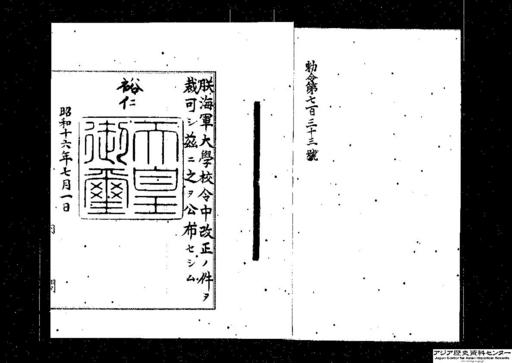 勅令第七百三十三號
朕海軍大學校令中改正ノ件ヲ
裁可シ茲ニ之ヲ公布セシム
裕仁
天皇
御璽
昭和十六年七月一日
アジア歴史資料センター
Japan Center for Asian Historical Records